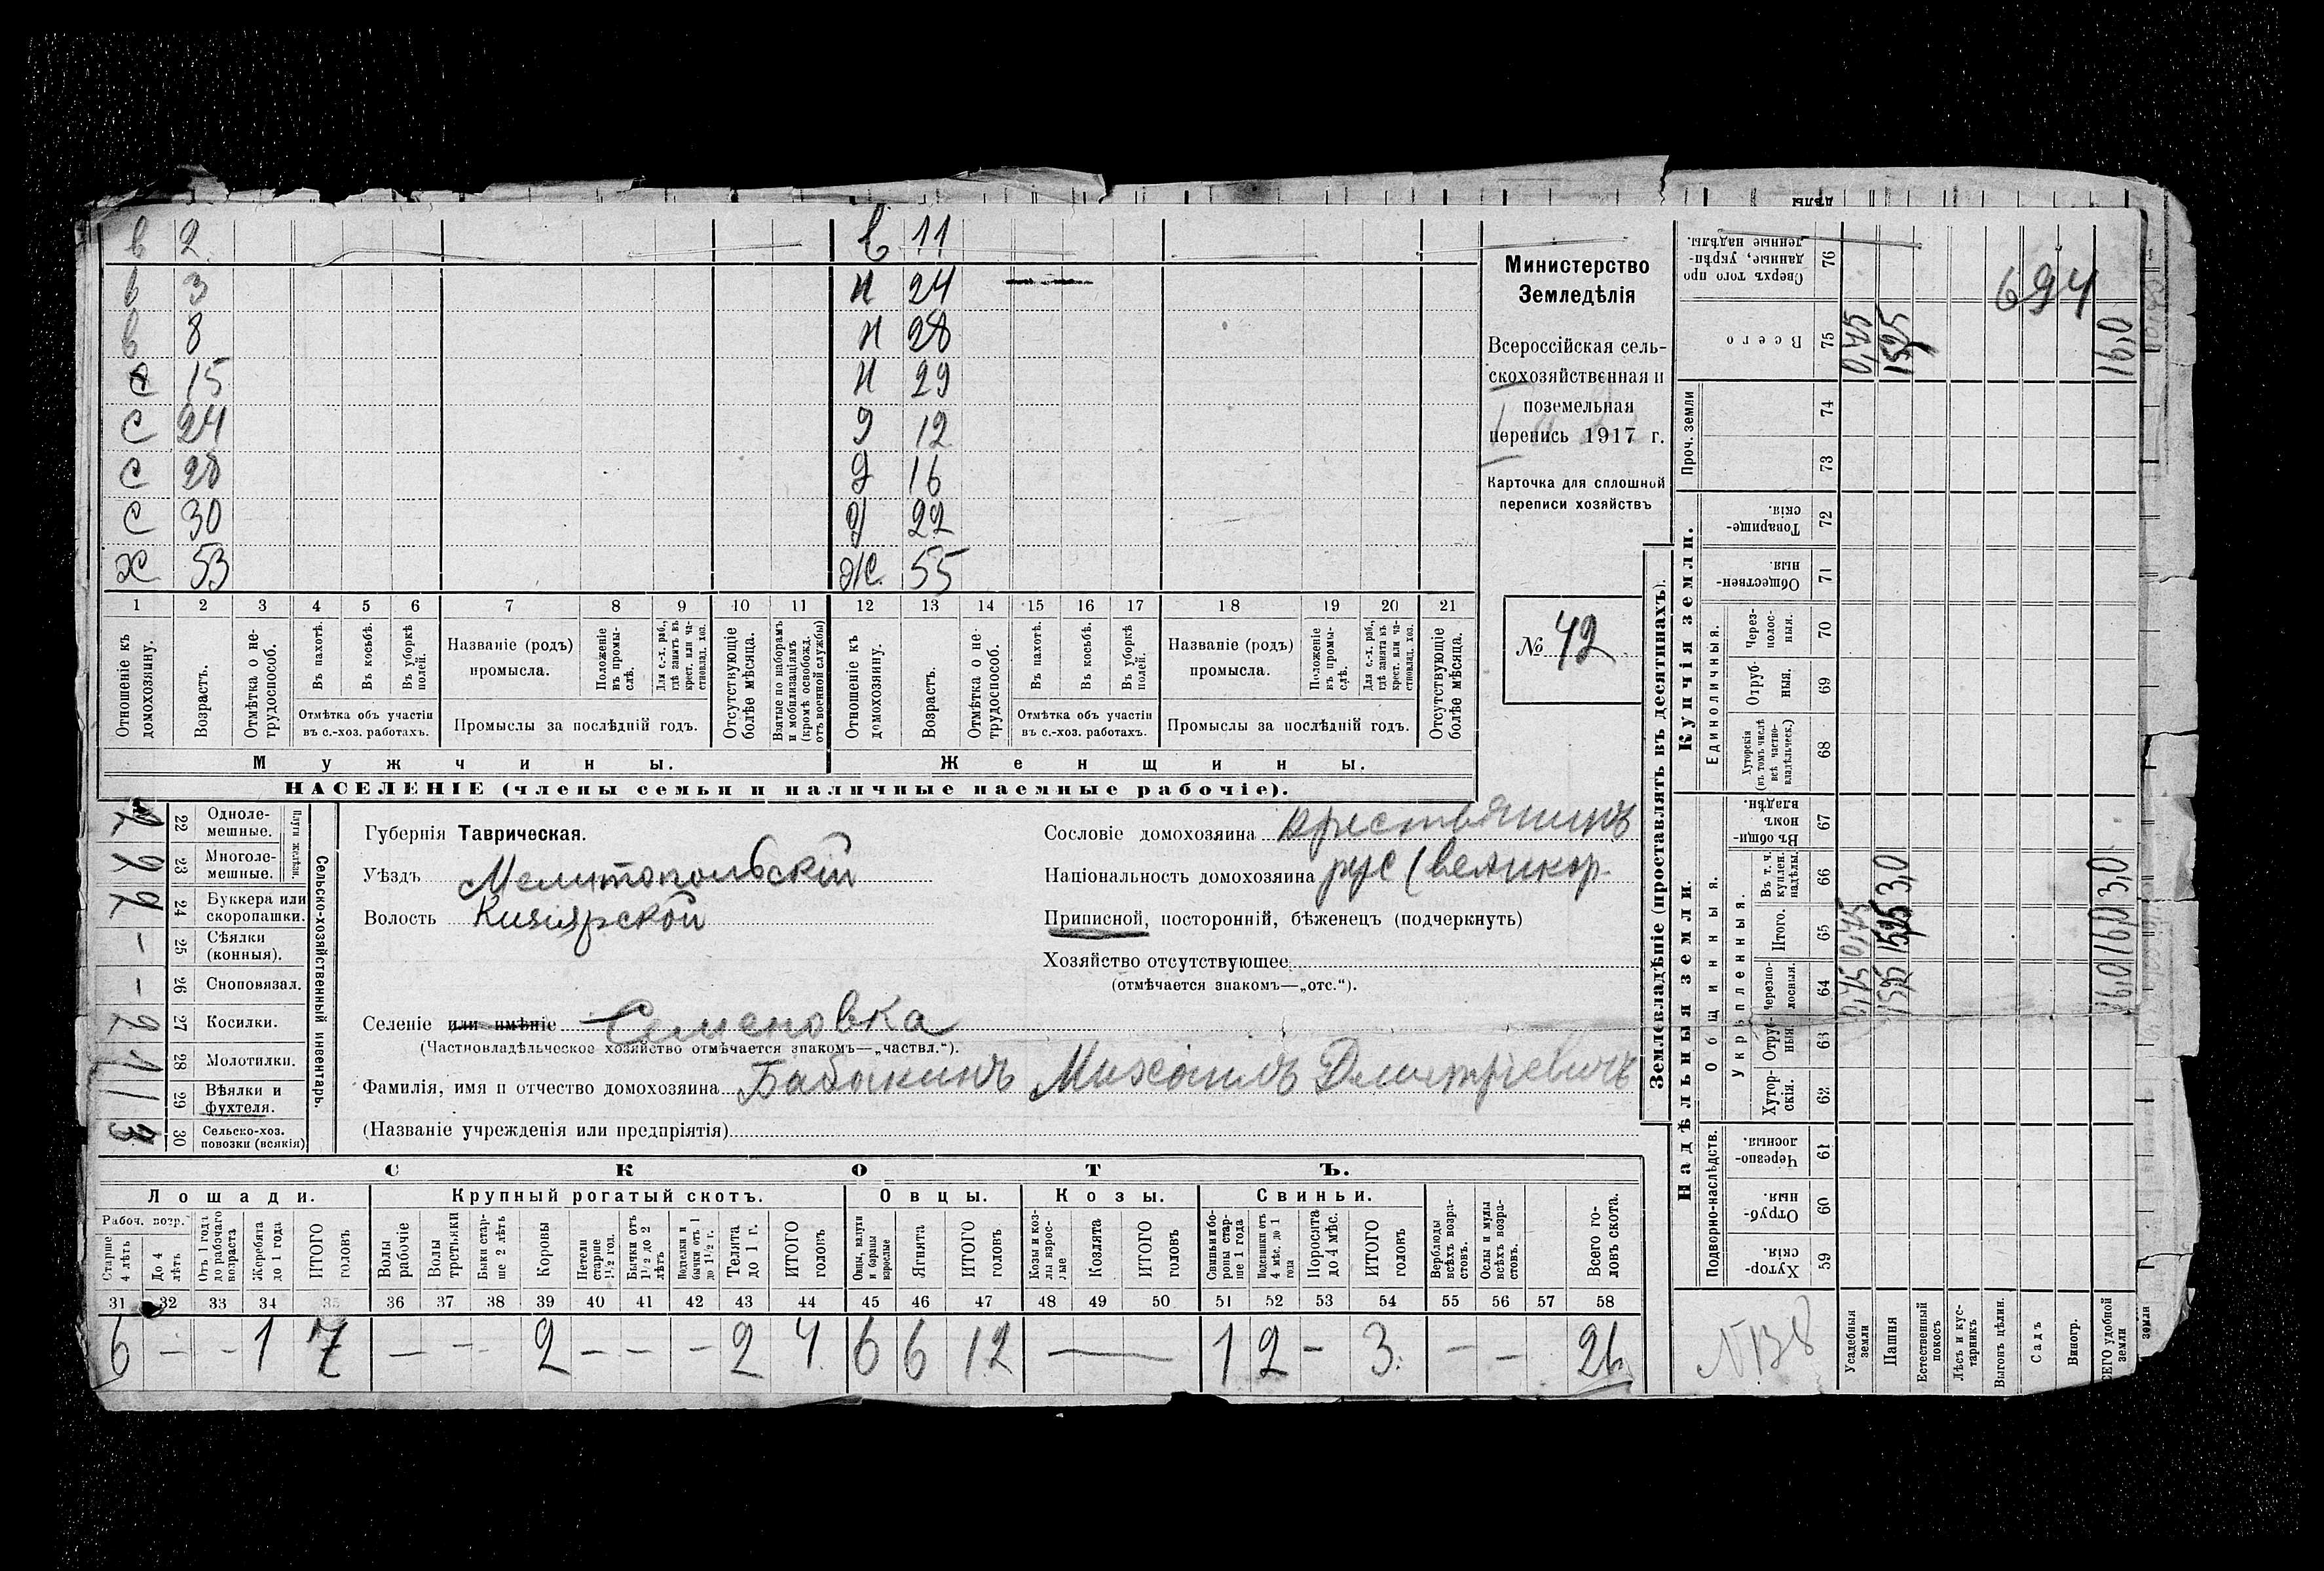 дѣлы
в 2 в 11
в 3 н 24
в 8 н 28
с 15 н 29
с 24 д 12
с 28 д 16
с 30 д 22
ж 53 ж. 55
1 2 3 4 5 6 7 8 9 10 11 12 13 14 15 16 17 18 19 20 21
Отношеніе къ домохозяину.
Возрастъ.
Отмѣтка о нетрудоспособ.
Въ пахотѣ.
Въ косьбѣ.
Въ уборкѣ полей.
Отмѣтка объ участіи
въ с.-хоз. работахъ.
Названіе (родъ)
промысла.
Положеніе въ промыслѣ.
Для с.-х. раб., гдѣ занятъ въ крест. или частновлад. хоз.
Промыслы за послѣдній годъ.
Отсутствующіе болѣе мѣсяца.
Взятые по наборамъ и мобилизаціямъ (кромѣ освобожд. отъ военной службы)
Отношеніе къ домохозяину.
Возрастъ.
Отмѣтка о нетрудоспособ.
Въ пахотѣ.
Въ косьбѣ.
Въ уборкѣ полей.
Отмѣтка объ участіи
въ с.-хоз. работахъ.
Названіе (родъ)
промысла.
Положеніе въ промыслѣ.
Для с.-х. раб., гдѣ занята въ крест. или частновлад. хоз.
Промыслы за послѣдній годъ.
Отсутствующіе болѣе мѣсяца.
Мужчины. Женщины.
НАСЕЛЕНІЕ (члены семьи и наличные наемные рабочіе).
Министерство
Земледѣлія
Всероссійская сель-
скохозяйственная и
поземельная
перепись 1917 г.
Карточка для сплошной
переписи хозяйствъ
№ 42
Сельско-хозяйственный инвентарь.
Плуги желѣзн.
22 Одноле-
мешные.
2 23 Многоле-
мешные.
2 24 Буккера или
скоропашки.
- 25 Сѣялки
(конныя).
- 26 Сноповязал.
2 27 Косилки.
1 28 Молотилки.
1 29 Вѣялки и
фухтеля.
3 30 Сельско-хоз.
повозки (всякія)
Губернія Таврическая.
Уѣздъ Мелитопольскій
Волость Кизіярской
Сословіе домохозяина крестьянинъ
Національность домохозяина рус (великор.
Приписной, посторонній, бѣженецъ (подчеркнуть)
Хозяйство отсутствующее
(отмѣчается знакомъ—„отс.“).
Селеніе или имѣніе Семеновка
(Частновладѣльческое хозяйство отмѣчается знакомъ—„частвл.“).
Фамилія, имя и отчество домохозяина Бабакинъ Михаилъ Дмитріевичъ
(Названіе учрежденія или предпріятія)
СКОТЪ.
Лошади. Крупный рогатый скотъ. Овцы. Козы. Свиньи.
Рабоч. возр.
Старше 4 лѣтъ
До 4 лѣтъ
Отъ 1 года до рабочаго возраста
Жеребята до 1 года
ИТОГО головъ
Волы рабочіе
Волы третьяки
Быки старше 2 лѣтъ
Коровы
Нетели старше 1½ год.
Бычки отъ 1½ до 2 лѣтъ
Подтелки и бычки отъ 1 до 1½ г.
Телята до 1 г.
ИТОГО головъ
Овцы, валухи и бараны взрослые
Ягнята
ИТОГО головъ
Козы и козлы взрослые
Козлята
ИТОГО головъ
Свиньи и боровы старше 1 года
Подсвинки отъ 4 мѣс. до 1 года
Поросята до 4 мѣс.
ИТОГО головъ
Верблюды всѣхъ возрастовъ.
Ослы и мулы всѣхъ возрастовъ.
Всего головъ скота.
31 32 33 34 35 36 37 38 39 40 41 42 43 44 45 46 47 48 49 50 51 52 53 54 55 56 57 58
6 - - 1 7 - - - 2 - - - 2 4 6 6 12 — 1 2 - 3. - - 26
Землевладѣніе (проставлять въ десятинахъ).
Надѣльныя земли. Купчія земли.
Подворно-наслѣдств.
Общинныя.
Укрѣпленныя.
Единоличныя.
Проч. земли
Сверхъ того проданные, укрѣпленные надѣлы. 76
Всего 75
74
73
Товарищескія. 72
Общественныя. 71
Черезполосныя. 70
Отрубныя. 69
Хуторскія (въ томъ числѣ всѣ частновладѣльческ.) 68
Въ общинномъ владѣн. 67
Въ т. ч. куплен. надѣлы. 66
Итого. 65
Черезполосныя. 64
Отрубныя 63
Хуторскія. 62
Черезполосныя 61
Отрубныя. 60
Хуторскія. 59
694
0,75 15,25 16,0
3,0 3,0
0,75 15,25 16,0
0,75 15,25 16,0
Усадебныя земли
Пашня
Естественный покосъ
Лѣсъ и кустарникъ
Выгонъ цѣлин.
Садъ
Виногр.
ВСЕГО удобной земли